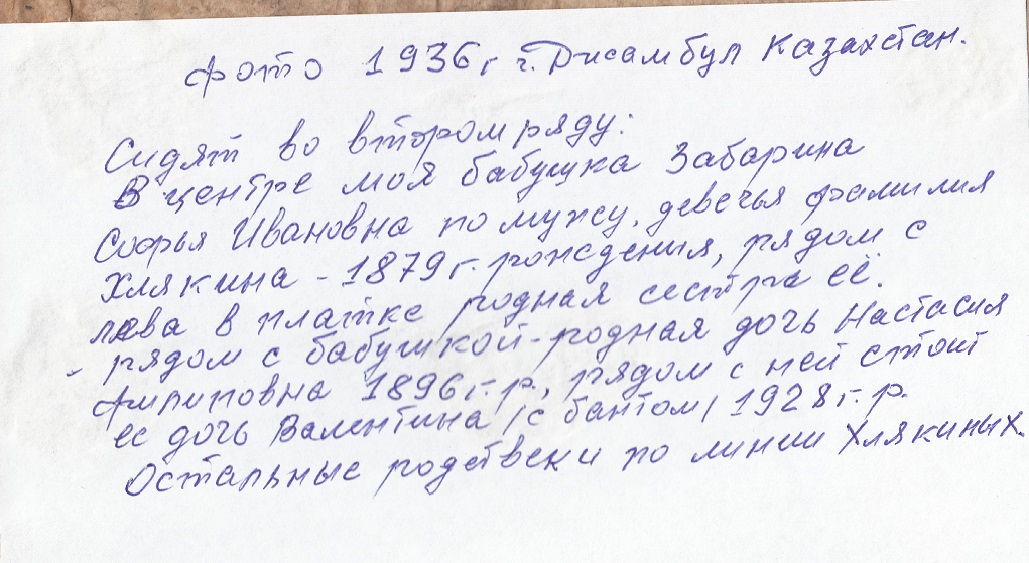 фото 1936г г. Джамбул Казахстан.
Сидят во втором ряду:
В центре моя бабушка Забарина
Софья Ивановна по мужу, девечья фамилия
Хлякина - 1879 г. рождения, рядом с
лева в платке родная сестра её.
- рядом с бабушкой - родная дочь Настасия
Филиповна 1896 г.р., рядом с ней стоит
ее дочь Валентина /с бантом/ 1928 г.р.
Остальные родствеки по линии Хлякиных.